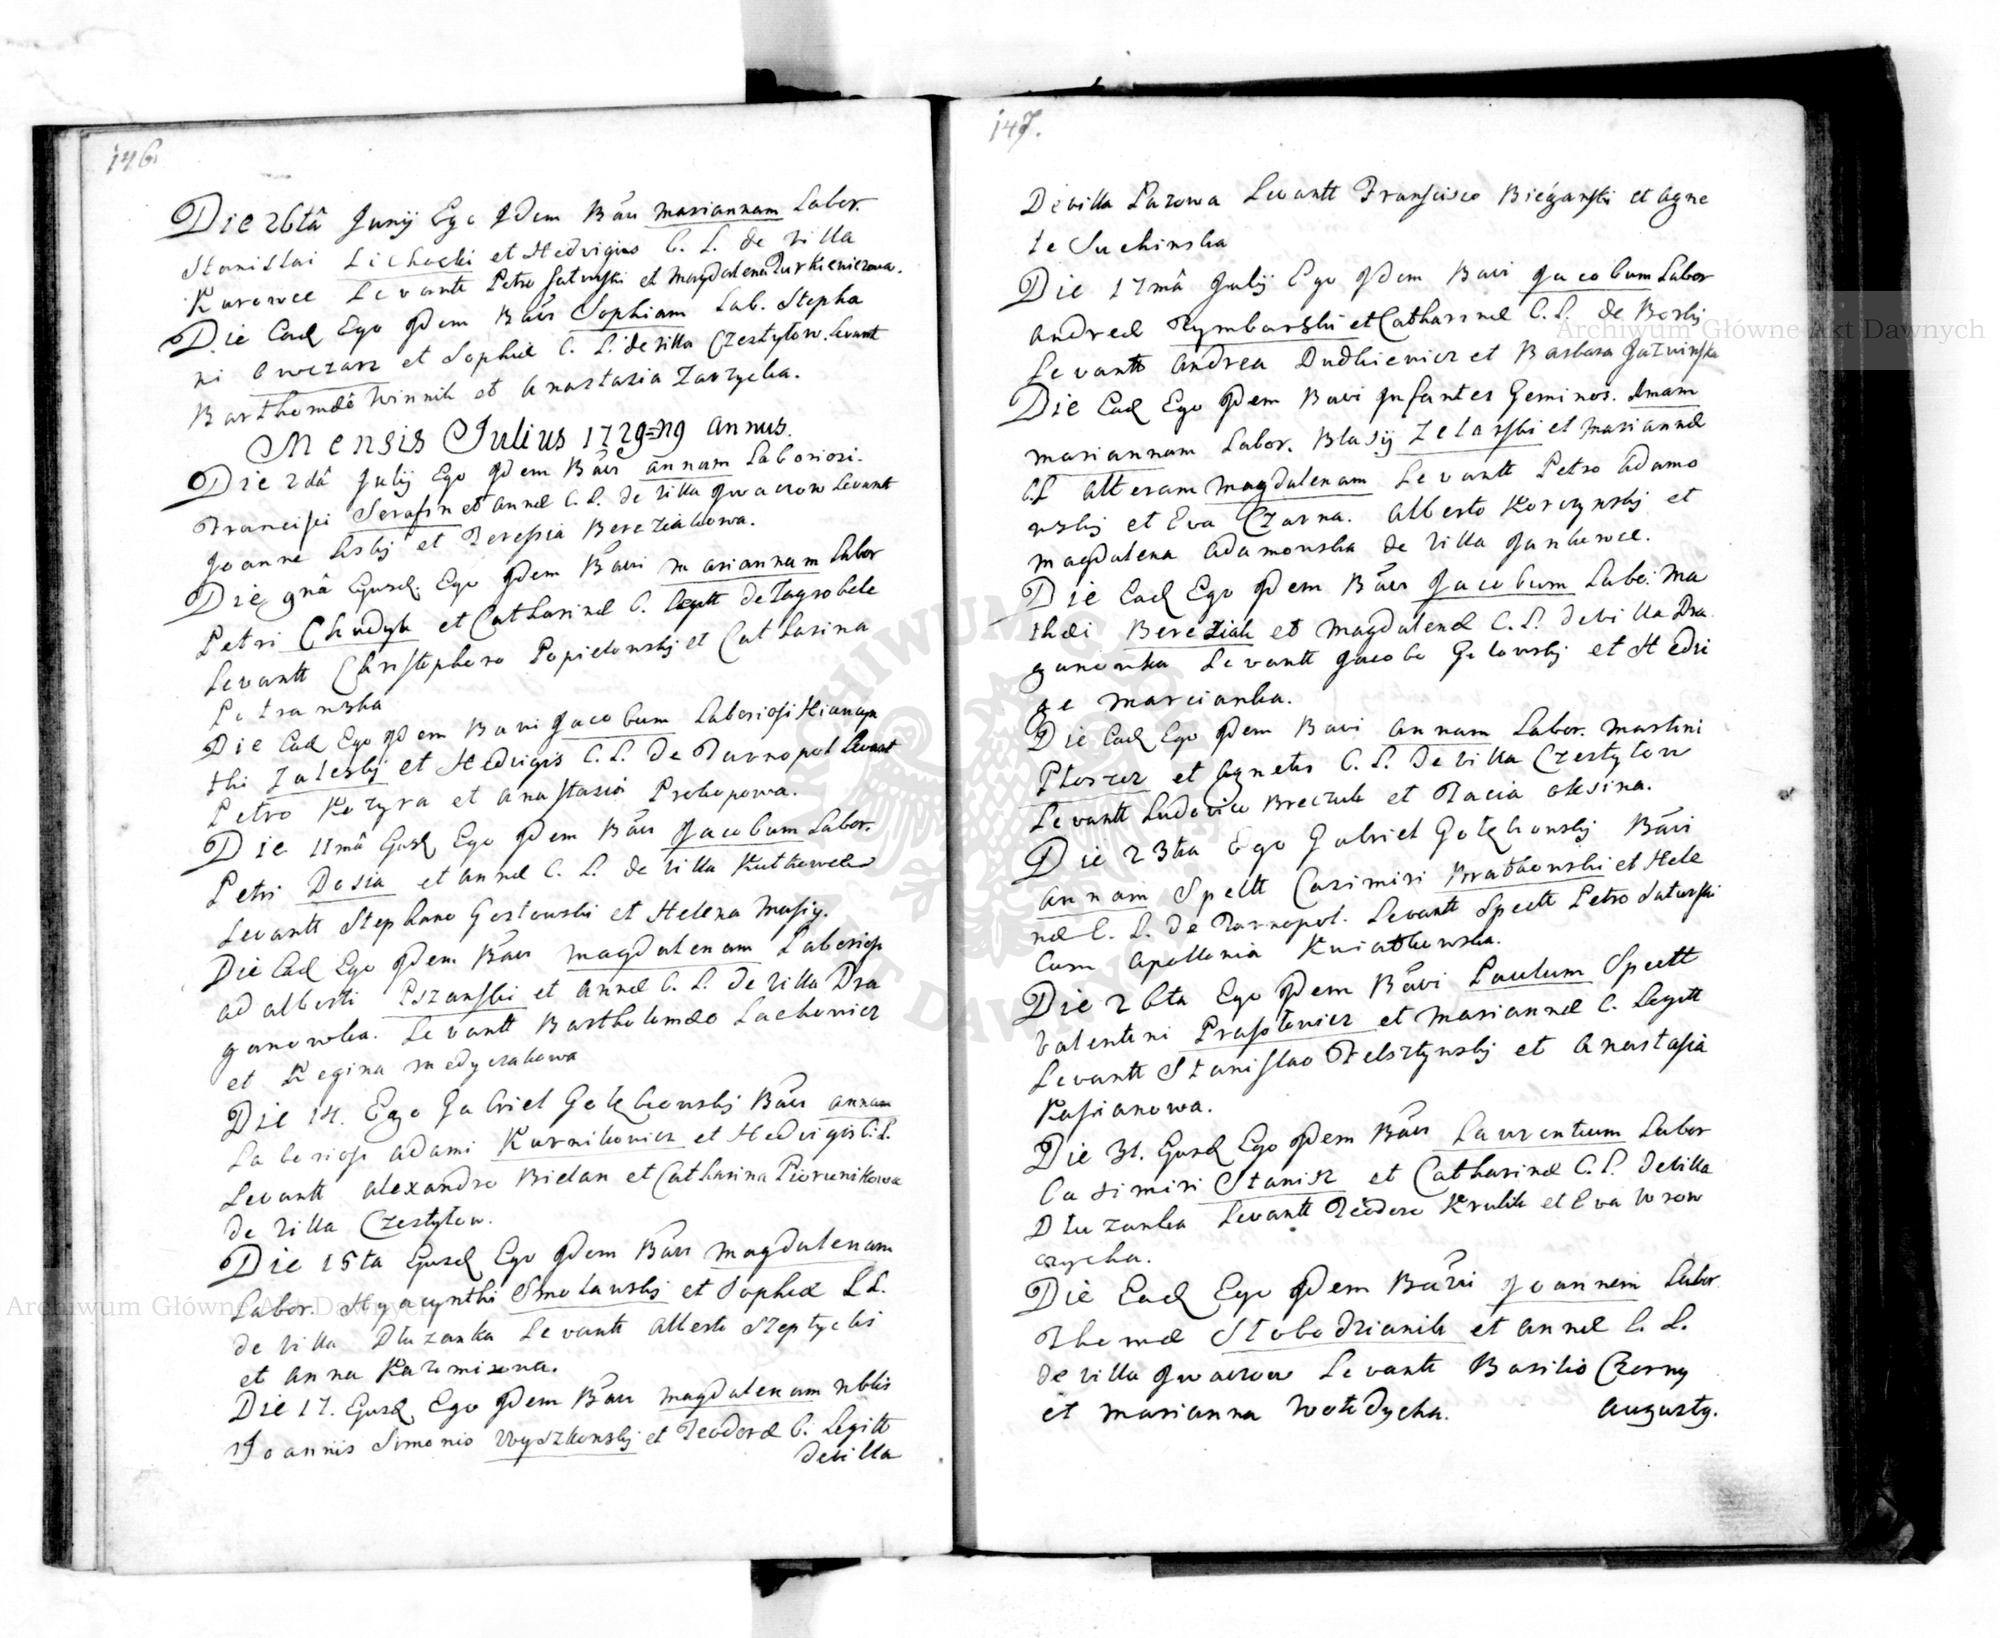 146
Die 26tâ Junÿ Ego Idem Bãvi Mariannam Labor.
Stanislai Lichocki et Hedvigis C. L. de villa
Kurowce Levantt Petro Saturski et Magdalena Zurkiewiczowa.
Die Ead Ego Idem Bãvi Sophiam Lab. Stepha
ni Owczarz et Sophiæ C. L. de villa Czestylow. Levant
Bartholomæo Winnik et Anastazia Zarzycka.
Mensis Julius 1729 annus.
Die 2dâ Julÿ Ego Idem Bãvi Annam Laboriosi.
Francisci Serafin et Annæ C. L. de villa Iwaczow Levantt
Joanne Lisky et Teressia Bereziakowa.
Die 9nâ Ejusd. Ego Idem Bãvi Mariannam Labor
Petri Chudyk et Catharinæ C. Legitt de Zagrobele
Levantt Christophoro Popielowsky et Catharina
Petranska
Die Ead Ego Idem Bavi Jacobum Laboriosi Hiacyn
thi Zalesky et Hedvigis C. L. de Tarnopol Levant
Petro Kozyra et Anastasia Prokopowa.
Die 11mâ Eusd Ego Idem Bãvi Jacobum Labor.
Petri Dosia et Annæ C. L. de villa Kutkowce
Levantt Stephano Gostowski et Helena Musiy.
Die Ead Ego Idem Bãvi Magdalenam Laboriosi
Adalberti Pszanski et Annæ C. L. de villa Dra
ganowka. Levantt Bartholomæo Lachowicz
et Regina Medyczakowa
Die 14. Ego Gabriel Gołębowsky Bãvi Annam
Laboriosi Adami Kurnikowicz et Hedvigis C. L.
Levantt Alexandro Bielan et Catharina Piorunikowa
de villa Czestylow.
Die 15ta Ejusd Ego Idem Bãvi Magdalenam
Labor. Hyacynthi Smolawsky et Sophiæ L L.
de villa Dłuzanka Levantt Alberto Szeptycki
et Anna Kazmirowa.
Die 17. Ejusd Ego Idem Bãvi Magdalenam Nblis
Joannis Simonis Wyszkowsky et Teodoræ C. Legitt
de villa
147.
De villa Lazowa Levantt Franscisco Bieganski et Agne
te Suchinska
Die 17mâ Julÿ Ego Idem Bavi Jacobum Labor
Andreæ Rymbarski et Catharinæ C. L. de Borky
Levantt Andrea Dudkiewicz et Barbara Jatwinska
Die Ead Ego Idem Bavi Infantes Geminos. Imam
Mariannam Labor. Blasÿ Zelaski et Mariannæ
CL Alteram Magdalenam Levantt Petro Adamo
wsky et Eva Czarna. Alberto Korczynsky et
Magdalena Adamowska de villa Jankowce.
Die Ead Ego Idem Bãvi Jacobum Labo: Ma
thæi Bereziak et Magdalenæ C. L. de villa Dra
ganowka Levantt Jacobo Gilowsky et Hedvi
ge Marcianka.
Die Ead Ego Idem Bavi Annam Labor. Martini
Ploszcz et Agnetis C. L. de villa Czestylow
Levantt Ludovico Breczuk et Tacia Olesina.
Die 23tia Ego Gabriel Gołębowsky Bãvi
Annam Spectt Casimiri Bratkowski et Hele
næ C. L. de Tarnopol. Levantt Spectt Petro Saturski
Cum Apollonia Kwiatkowska.
Die 26ta Ego Idem Bãvi Paulum Spectt
Valentini Prasolowicz et Mariannæ C. Legitt
Levantt Stanislao Felsztynsky et Anastasia
Kasianowa.
Die 31. Eusd Ego Idem Bãvi Laurentium Labor
Casimiri Stanisz et Catharinæ C. L. de villa
Dłuzanka Levantt Teodoro Krulik et Eva Wrow
czycha.
Die Ead Ego Idem Bãvi Joannem Labor
Thomæ Słobodzianik et Annæ C. L.
de villa Iwaczow Levantt Basilio Czorny
et Marianna Wołodycha. Augusty.
Archiwum Główne Akt Dawnych
Archiwum Główne Akt Dawnych
ARCHIWUM GŁÓWNE AKT DAWNYCH